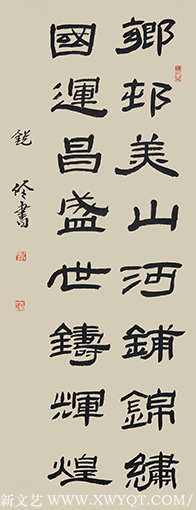 鄉邨美山河鋪錦繡
國運昌盛世鑄輝煌
書
新文艺 www.XWYQT.com